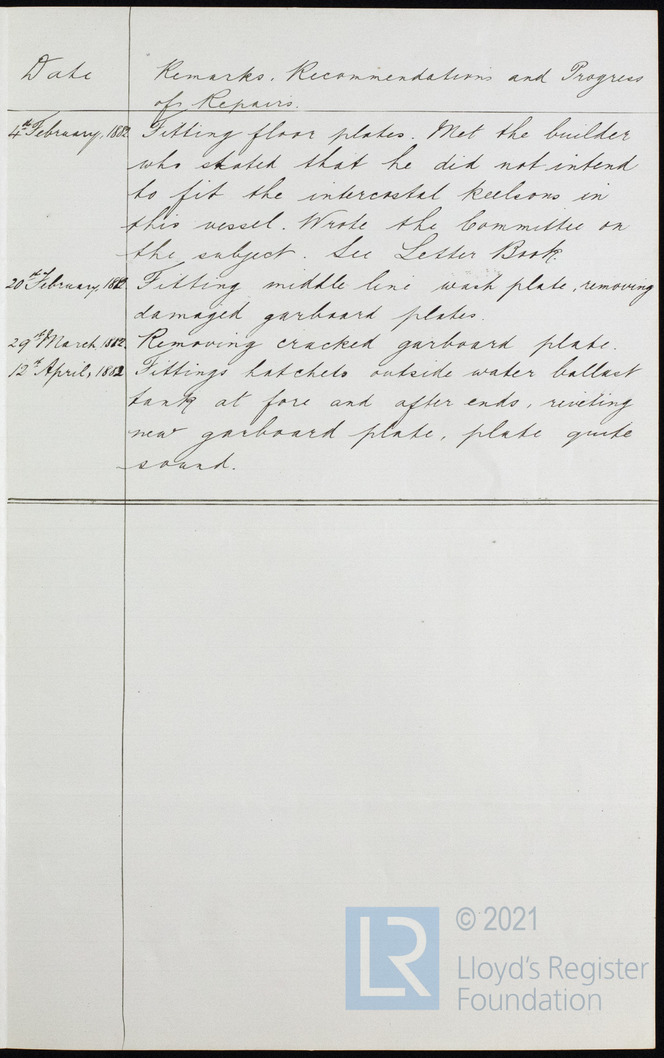 Date Remarks. Recommendations and Progress
of Repairs.
4th February, 1882 Fitting floor plates. Met the builder
who stated that he did not intend
to fit the intercostal keelsons in
this vessel. Wrote the Committee on
the subject. See Letter Book.
20th February, 1882 Fitting middle line wash plate, removing
damaged garboard plates.
29th March, 1882 Removing cracked garboard plate.
12th April, 1882 Fittings hatchets outside water ballast
tank at fore and after ends, riveting
new garboard plate, plate quite
sound.
© 2021
LR
Lloyd's Register
Foundation